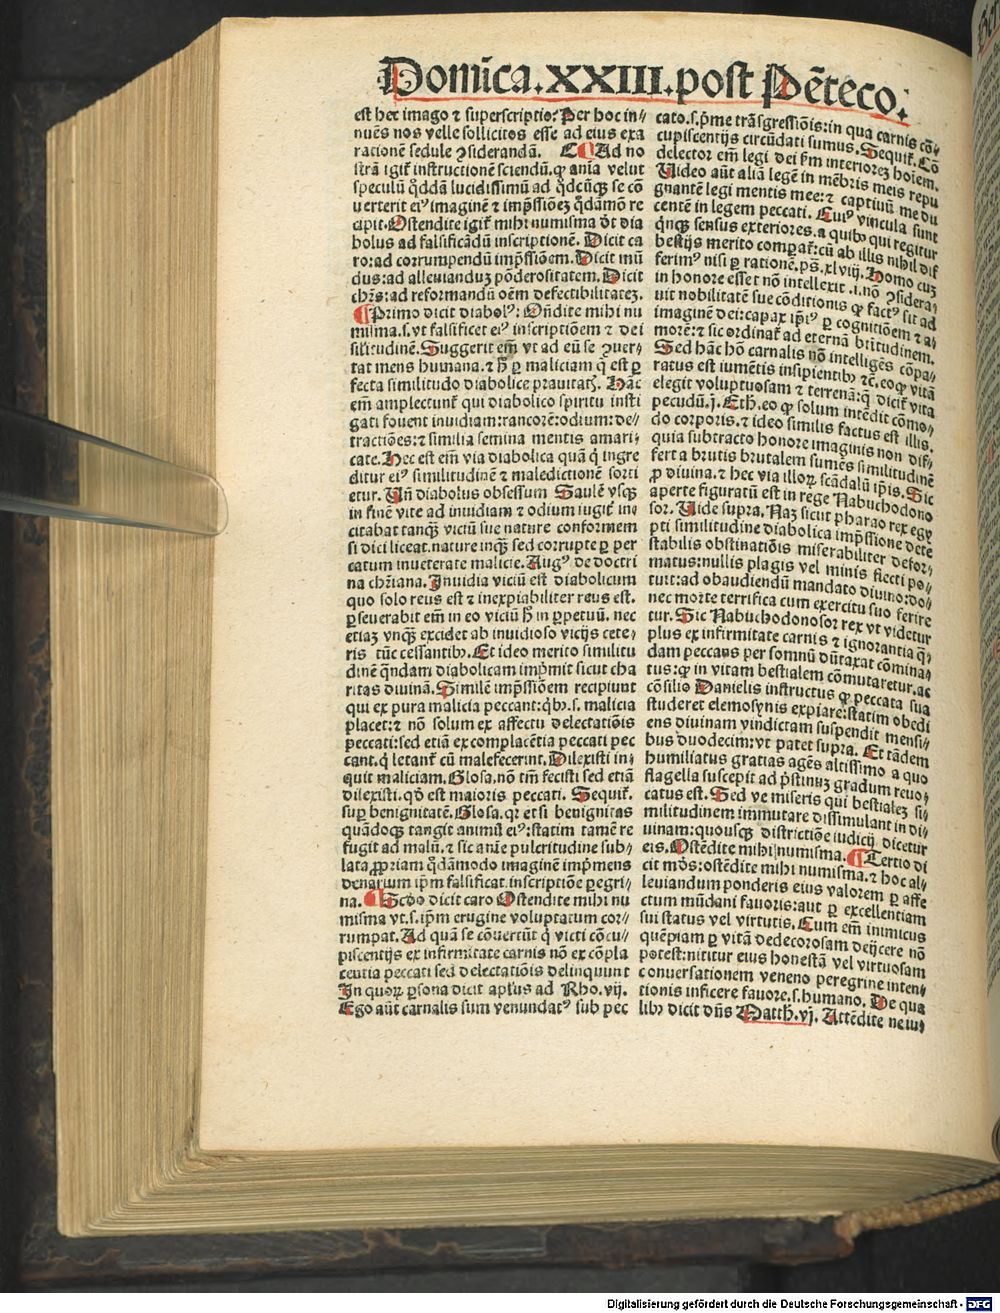 Domīca.XXIII.post Pēteco.
est hec imago ⁊ superscriptio? Per hoc in⸗
nuēs nos velle sollicitos esse ad eius exa
rationē sedule ꝯsiderandā. C ¶ Ad no
strā igit̄ instructionē sciendū. ꝙ anīa velut
speculū q̄ddā lucidissimū ad q̄dcūqꝫ se cō
uerterit eiꝰ imaginē ⁊ imp̄ssiōeꝫ q̄dāmō re
cipit. Ostendite igit̄ mihi numisma dt̄ dia
bolus ad falsificādū inscriptionē. Dicit ca
ro: ad corrumpendū imp̄ssiōem. Dicit mū
dus: ad alleuianduꝫ pōderositatem. Dicit
chr̄s: ad reformandū oēm defectibilitateꝫ.
¶ Primo dicit diabolꝰ: Oñdite mihi nu
misma. s. vt falsificet eiꝰ inscriptiōem ⁊ dei
silitudinē. Suggerit em̄ vt ad eū se ꝯuer⸗
tat mens humana. ⁊ h̄ ꝑ maliciam q̄ est ꝑ
fecta similitudo diabolice prauitatꝭ. Hāc
em̄ amplectunt̄ qui diabolico spiritu insti
gati fouent inuidiam: rancorē: odium: de⸗
tractiōes: ⁊ similia semina mentis amari⸗
cate. Hec est em̄ via diabolica quā q̄ ingre
ditur eiꝰ similitudinē ⁊ maledictionē sorti
etur. Uñ diabolus obsessum Saulē vsqꝫ
in finē vite ad inuidiam ⁊ odium iugit̄ in⸗
citabat tanqꝫ victū sue nature conformem
si dici liceat. nature inqꝫ sed corrupte ꝑ per
catum inueterate malicie. Augꝰ de doctri
na chr̄iana. Inuidia viciū est diabolicum
quo solo reus est ⁊ inexpiabiliter reus est.
ꝑseuerabit em̄ in eo viciū h̄ in ꝑpetuū. nec
etiaꝫ vnqꝫ excidet ab inuidioso vicijs cete⸗
ris tūc cessantibꝫ. Et ideo merito similitu
dinē q̄ndam diabolicam imp̄mit sicut cha
ritas diuinā. Similē imp̄ssiōem recipiunt
qui ex pura malicia peccant: q̄bꝫ. s. malicia
placet: ⁊ nō solum ex affectu delectatiōis
peccati: sed etiā ex complacētia peccati pec
cant. q̄ letant̄ cū malefecerint. Dilexisti in⸗
quit maliciam. Glosa. nō tm̄ fecisti sed etiā
dilexisti. qd̄ est maioris peccati. Sequit̄.
suꝑ benignitatē. Glosa. qr etsi benignitas
quādoqꝫ tangit animū eiꝰ: statim tamē re
fugit ad malū. ⁊ sic anīe pulcritudine sub⸗
lata ꝓpriam q̄dāmodo imaginē imp̄mens
denarium ip̄m falsificat. inscriptiōe ꝑegri⸗
na. ¶ Scdo dicit caro Ostendite mihi nu
misma vt. s. ip̄m erugine voluptatum cor⸗
rumpat. Ad quā se cōuertūt q̄ victi cōcu⸗
piscentijs ex infirmitate carnis nō ex cōpla
centia peccati sed delectatiōis delinquunt
In quoꝝ ꝑsona dicit apl̄us ad Rho. vij.
Ego aūt carnalis sum venundatꝰ sub pec
cato. s. p̄me trāsgressiōis: in qua carnis cō⸗
cupiscentijs circūdati sumus. Sequit̄. Cō
delector em̄ legi dei ẜm interioreꝫ hoīem.
Uideo aūt aliā legē in mēbris meis repu
gnantē legi mentis mee: ⁊ captiuū me du
centē in legem peccati. Cuiꝰ vincula sunt
q̄nqꝫ sensus exteriores. a quibꝫ qui regitur
bestijs merito compat̄: cū ab illis nihil dif
ferim̄ nisi ꝑ rationē. pẜ. xlviij. Homo cuꝫ
in honore esset nō intellexit. i. nō ꝯsidera⸗
uit nobilitatē sue cōditionis ꝙ factꝰ sit ad
imaginē dei: capax ip̄iꝰ ꝑ cognitiōem ⁊ a⸗
morē: ⁊ sic ordinat̄ ad eternā btītudinem.
Sed hāc hō carnalis nō intelligēs cōpa⸗
ratus est iumētis insipientibꝫ ⁊c. eoqꝫ vitā
elegit voluptuosam ⁊ terrenā: q̄ dicit̄ vita
pecudū. j. Eth. eo ꝙ solum intēdit cōmo⸗
do corporis. ⁊ ideo similis factus est illis.
quia subtracto honore imaginis non dif⸗
fert a brutis brutalem sumēs similitudinē
ꝓ diuina. ⁊ hec via illoꝝ scādalū ip̄is. Sic
aperte figuratū est in rege Nabuchodono
sor. Uide supra. Naꝫ sicut pharao rex egy
pti similitudine diabolica imp̄ssione dete
stabilis obstinatiōis miserabiliter defor⸗
matus: nullis plagis vel minis flecti po⸗
tuit: ad obaudiendū mandato diuino: do⸗
nec morte terrifica cum exercitu suo ferire
tur. Sic Nabuchodonosor rex vt videtur
plus ex infirmitate carnis ⁊ ignorantia q̄⸗
dam peccans per somnū dūtaxat cōmina⸗
tus: ꝙ in vitam bestialem cōmutaretur. ac
cōsilio Danielis instructus ꝙ peccata sua
studeret elemosynis expiare: statim obedi
ens diuinam vindictam suspendit mensi⸗
bus duodecim: vt patet supra. Et tādem
humiliatus gratias agēs altissimo a quo
flagella suscepit ad p̄stinuꝫ gradum reuo⸗
catus est. Sed ve miseris qui bestialeꝫ si⸗
militudinem immutare dissimulant in di⸗
uinam: quousqꝫ districtiōe iudicij dicetur
eis. Ostēdite mihi numisma. ¶ Tertio di
cit mōs: ostēdite mihi numisma. ⁊ hoc al⸗
leuiandum ponderis eius valorem ꝑ affe
ctum mūdani fauoris: aut ꝑ excellentiam
sui status vel virtutis. Cum em̄ inimicus
quēpiam ꝑ vitā dedecorosam deijcere nō
potest: nititur eius honestā vel virtuosam
conuersationem veneno peregrine inten⸗
tionis inficere fauore. s. humano. De qua
libꝫ dicit dn̄s Matth. vj. Attēdite ne iu⸗
Digitalisierung gefördert durch die Deutsche Forschungsgemeinschaft - DFG